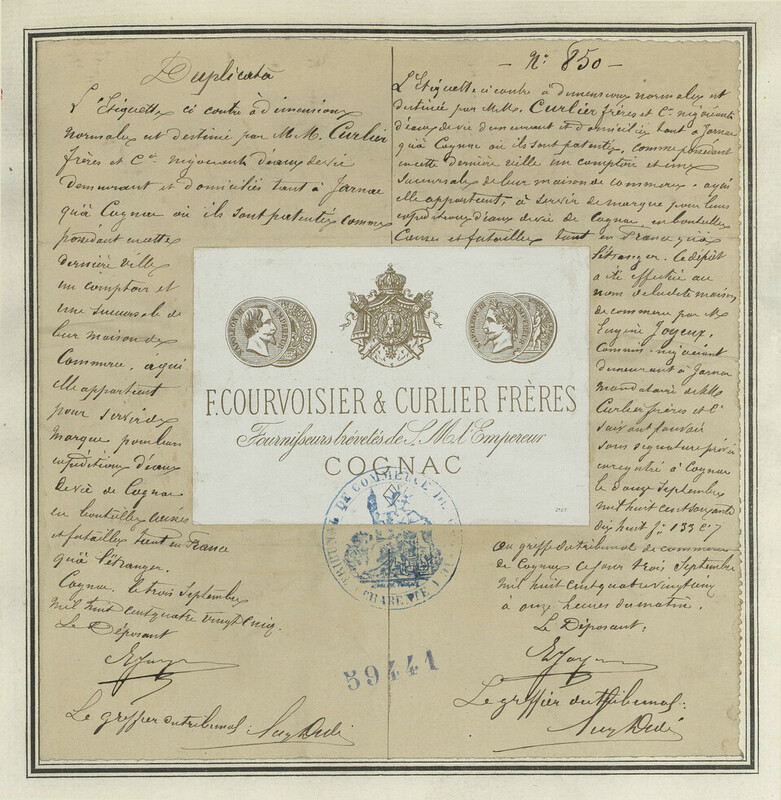 Duplicata
L'Etiquette ci contre à dimensions
normales est destiné par M.M. Curlier
frères et Cie négociants d'eaux de vie
demeurant et domiciliés tant à Jarnac
qu'à Cognac où ils sont patentés comme
possédant en cette
dernière ville
un comptoir et
une succursale de
leur maison de
Commerce, à qui
elle appartient
pour servir de
marque pour leurs
expéditions d'eaux
de vie de Cognac
en bouteilles caisses
et futailles tant en France
qu'à l'étranger.
Cognac le trois Septembre
mil huit cent quatre vingt cinq.
Le Déposant
E Joyeux
Le greffier du tribunal.
- No 850 -
L'Etiquette ci contre à dimensions normales est
destinée par M.M. Curlier frères et Cie négociants
d'eaux de vie demeurant et domiciliés tant à Jarnac
qu'à Cognac où ils sont patentés, comme possédant
en cette dernière ville un comptoir et une
succursale de leur maison de commerce, à qui
elle appartient, à servir de marque pour leurs
expéditions d'eaux de vie de Cognac en bouteilles
Caisses et futailles tant en France qu'à
l'étranger. Ce dépôt
a été effectué au
nom de la dite maison
de commerce par M.
Eugène Joyeux,
Commis-négociant
demeurant à Jarnac
mandataire de MM.
Curlier frères et Cie
suivant pouvoir
sous signature privée
enregistré à Cognac
le douze Septembre
mil huit cent soixante
dix huit fo 133 Co 7
au greffe du tribunal de commerce
de Cognac ce jour trois Septembre
mil huit cent quatre vingt cinq
à onze heures du matin.
Le Déposant:
E Joyeux
Le greffier du tribunal:
NAPOLEON III EMPEREUR
NAPOLEON III EMPEREUR
F. COURVOISIER & CURLIER FRÈRES
Fournisseurs brévetés de S. M. l'Empereur
COGNAC
TRIBUNAL DE COMMERCE DE
CHARENTE
59441